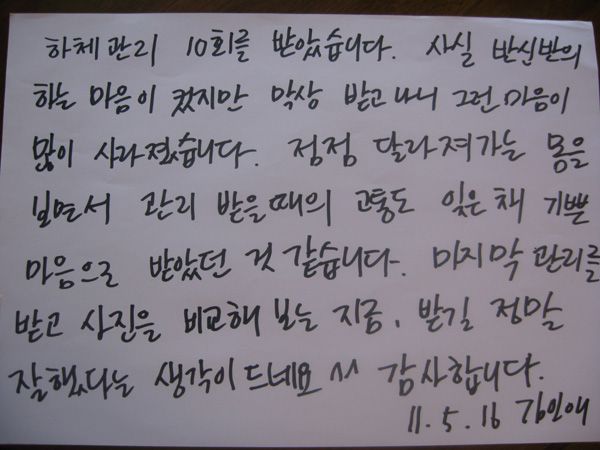 하체관리 10회를 받았습니다. 사실 반신반의
하는 마음이 컸지만 막상 받고나니 그런 마음이
많이 사라졌습니다. 점점 달라져가는 몸을
보면서 관리 받을때의 고통도 잊은채 기쁜
마음으로 받았던 것 같습니다. 마지막 관리를
받고 사진을 비교해 보는 지금, 받길 정말
잘했다는 생각이 드네요 ^^ 감사합니다.
11. 5. 16 김인애